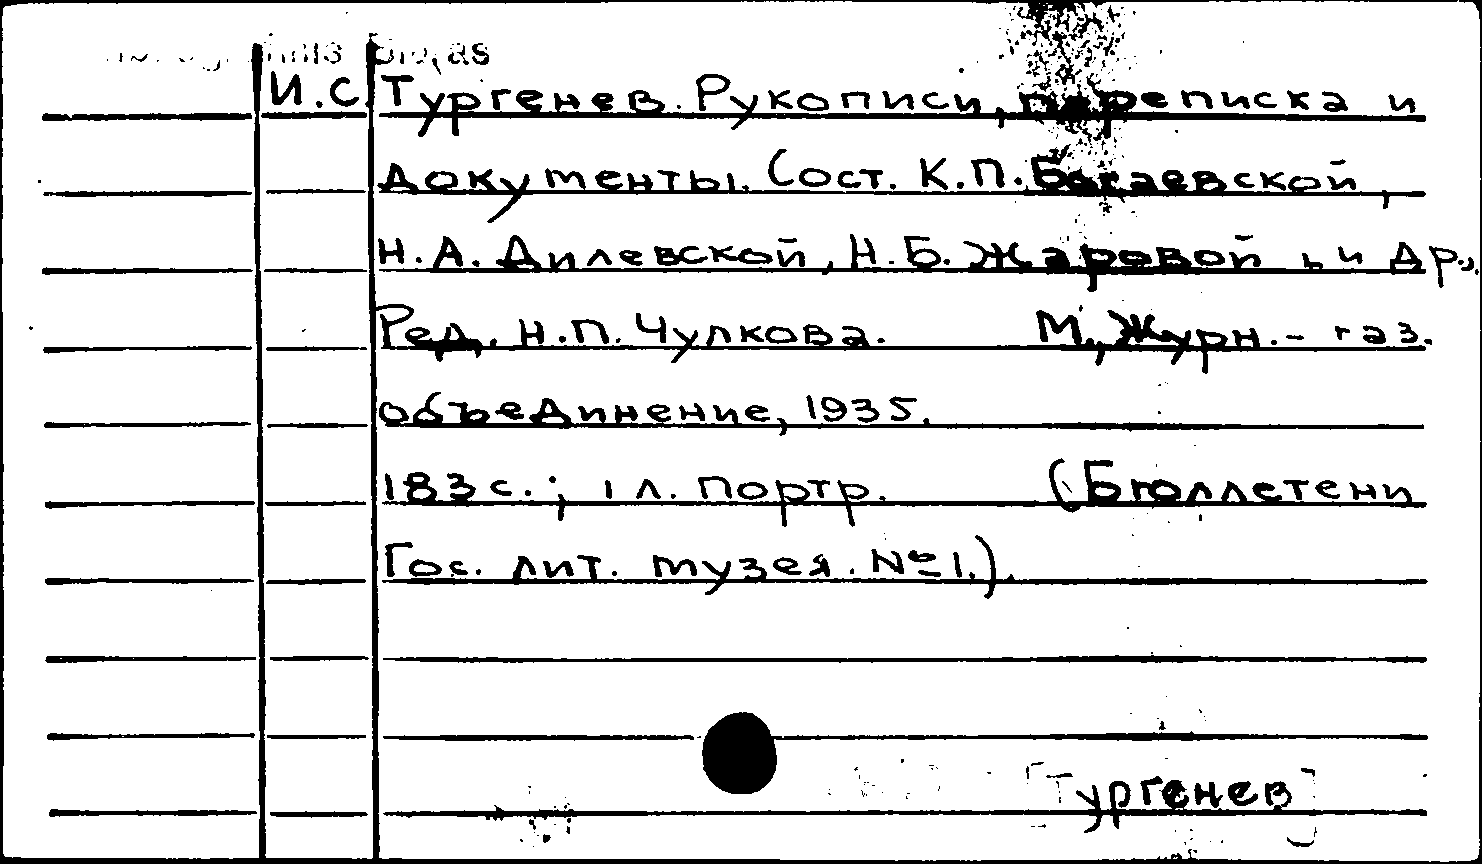 И.С. Тургенев. Рукописи, переписка и
документы. Сост. К.П. Богаевской,
Н.А. Дилевской, Н.Б. Жаровой и др.,
Ред. Н.П. Чулкова. М., Журн.- газ.
объединение, 1935.
183 с.; 1 л. портр. (Бюллетени
Гос. лит. музея. №1.).
[Тургенев]